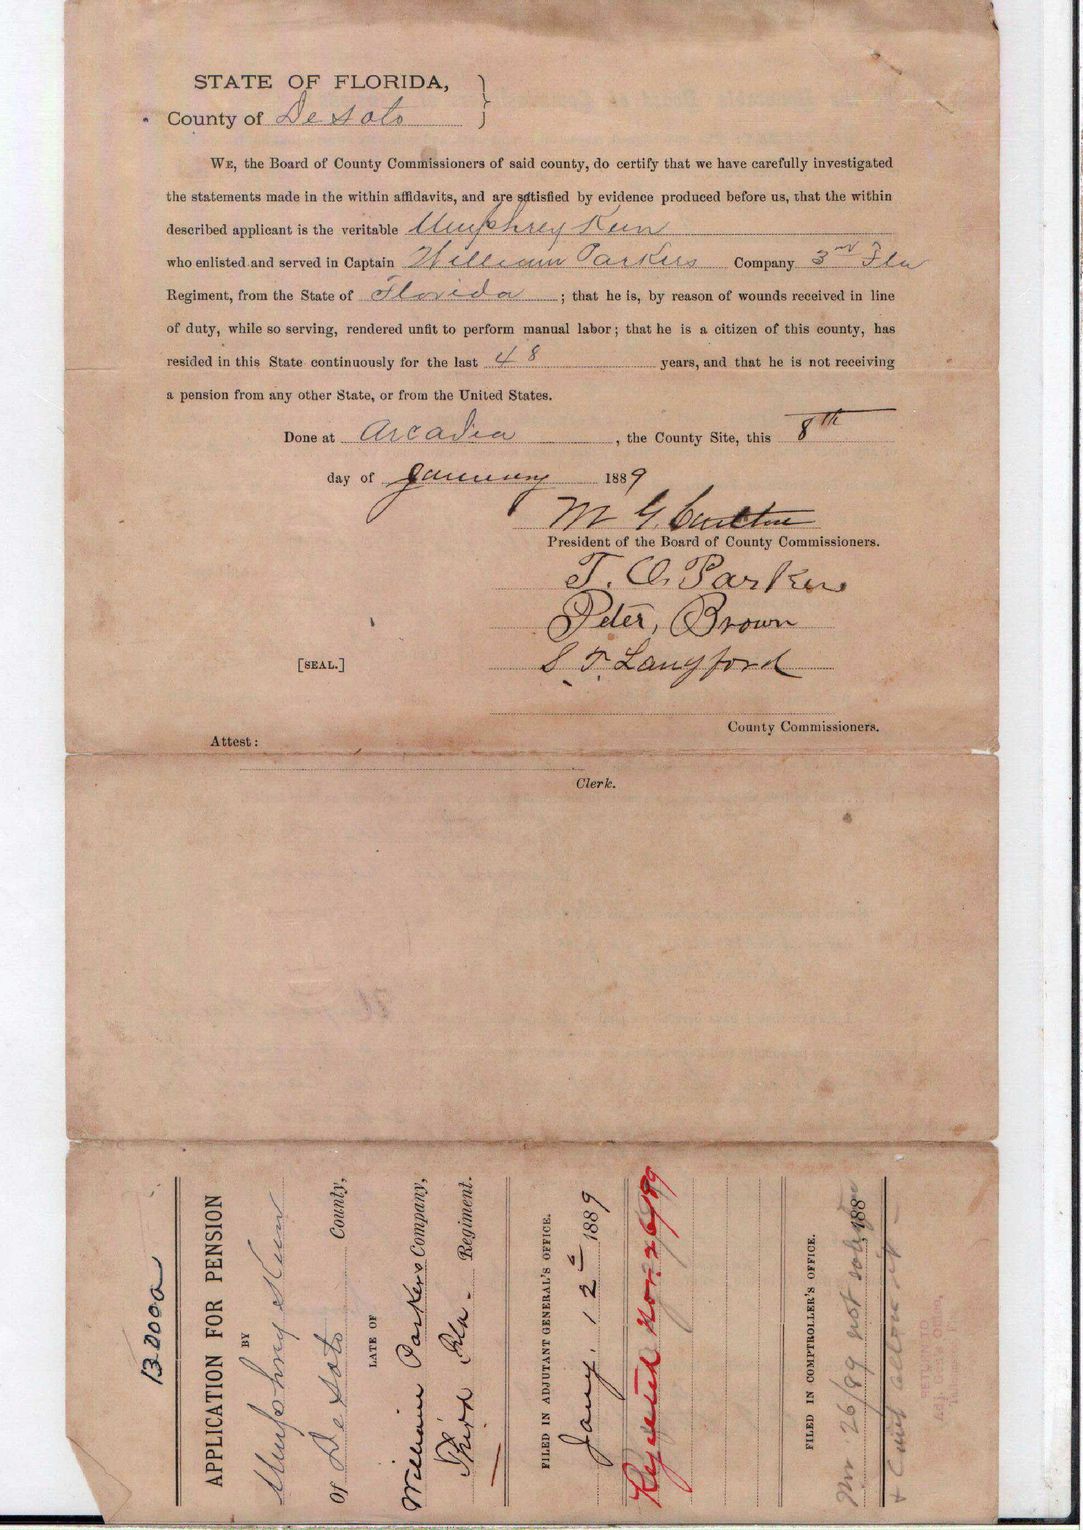 STATE OF FLORIDA,
County of De Soto
WE, the Board of County Commissioners of said county, do certify that we have carefully investigated
the statements made in the within affidavits, and are satisfied by evidence produced before us, that the within
described applicant is the veritable Umphrey Keen
who enlisted and served in Captain William Parkers Company 3rd Fla
Regiment, from the State of Florida ; that he is, by reason of wounds received in line
of duty, while so serving, rendered unfit to perform manual labor; that he is a citizen of this county, has
resided in this State continuously for the last 48 years, and that he is not receiving
a pension from any other State, or from the United States.
Done at Arcadia , the County Site, this 8th
day of January 1889
M G Carlton
President of the Board of County Commissioners.
T. O. Parker
Peter, Brown
[SEAL.]
S. T. Langford
County Commissioners.
Attest:
Clerk.
APPLICATION FOR PENSION
BY
Umphrey Keen
Of De Soto County,
LATE OF
William Parkers Company,
Third Fla. Regiment.
FILED IN ADJUTANT GENERAL'S OFFICE.
Jany. 12th 1889
Rejected Nov. 26/89
FILED IN COMPTROLLER'S OFFICE.
188
Nov. 26/89 not